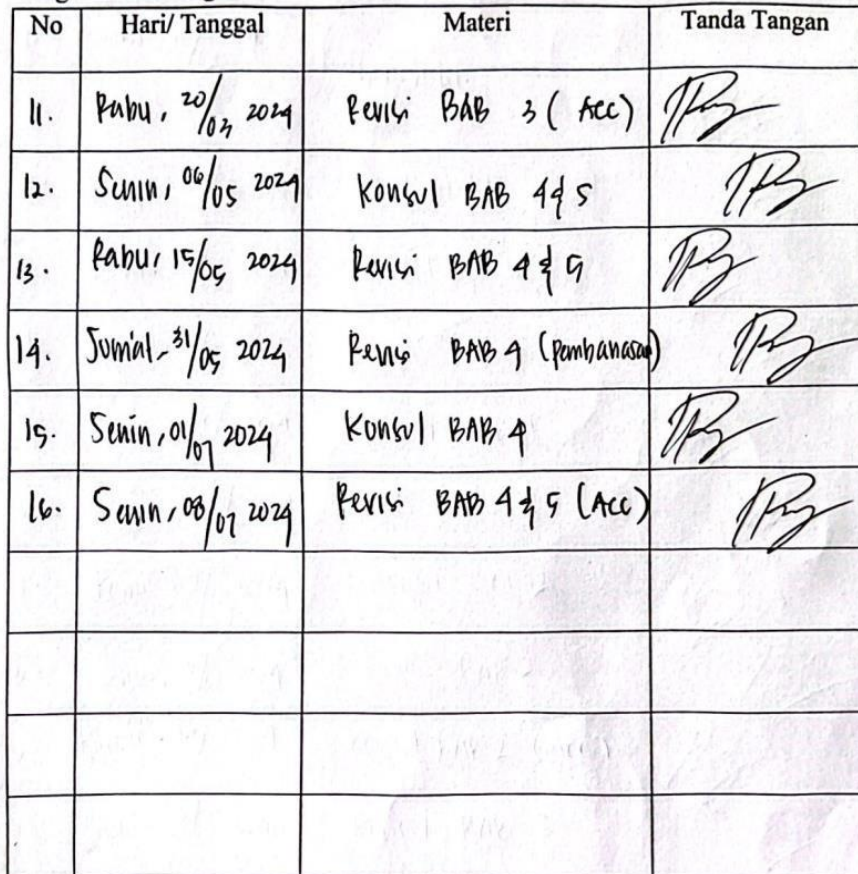 No Hari/ Tanggal Materi Tanda Tangan
11. Rabu, 20/03 2024 Revisi BAB 3 ( Acc )
12. Senin, 06/05 2024 Konsul BAB 4 & 5
13. Rabu, 15/05 2024 Revisi BAB 4 & 5
14. Jum'at, 31/05 2024 Revisi BAB 4 (pembahasan)
15. Senin, 01/07 2024 Konsul BAB 4
16. Senin, 08/07 2024 Revisi BAB 4 & 5 (Acc)